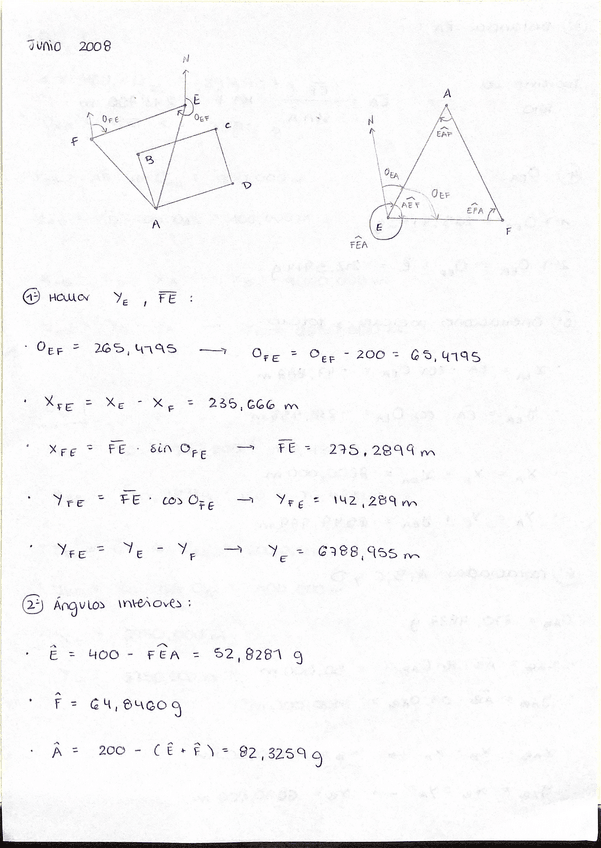 Junio 2008
N
E
F
OFE
OEF
B
C
D
A
N
A
EAF
OEA
OEF
AEF
EFA
E
F
FEA
1º Hallar YE , FE :
· OEF = 265,4795 → OFE = OEF - 200 = 65,4795
· XFE = XE - XF = 235,666 m
· XFE = FE · sin OFE → FE = 275,2899 m
· YFE = FE · cos OFE → YFE = 142,289 m
· YFE = YE - YF → YE = 6788,955 m
2º Ángulos interiores :
· Ê = 400 - FEA = 52,8281 g
· F̂ = 64,8460 g
· Â = 200 - (Ê + F̂) = 82,3259 g